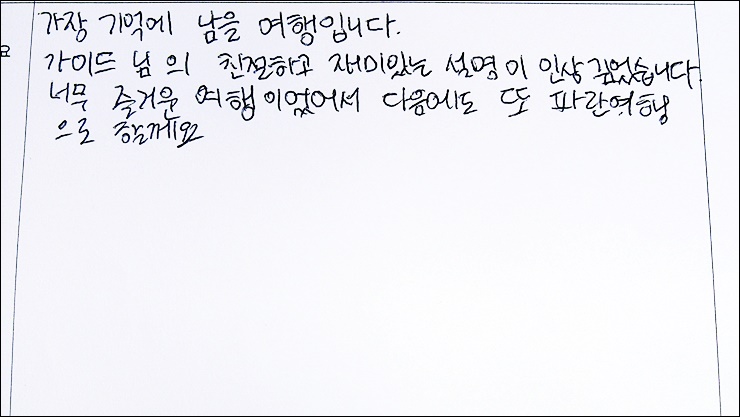 가장 기억에 남을 여행입니다.
요
가이드 님 의 친절하고 재미있는 설명이 인상 깊었습니다.
너무 즐거운 여행이었어서 다음에도 또 파란여행
으로 할께요